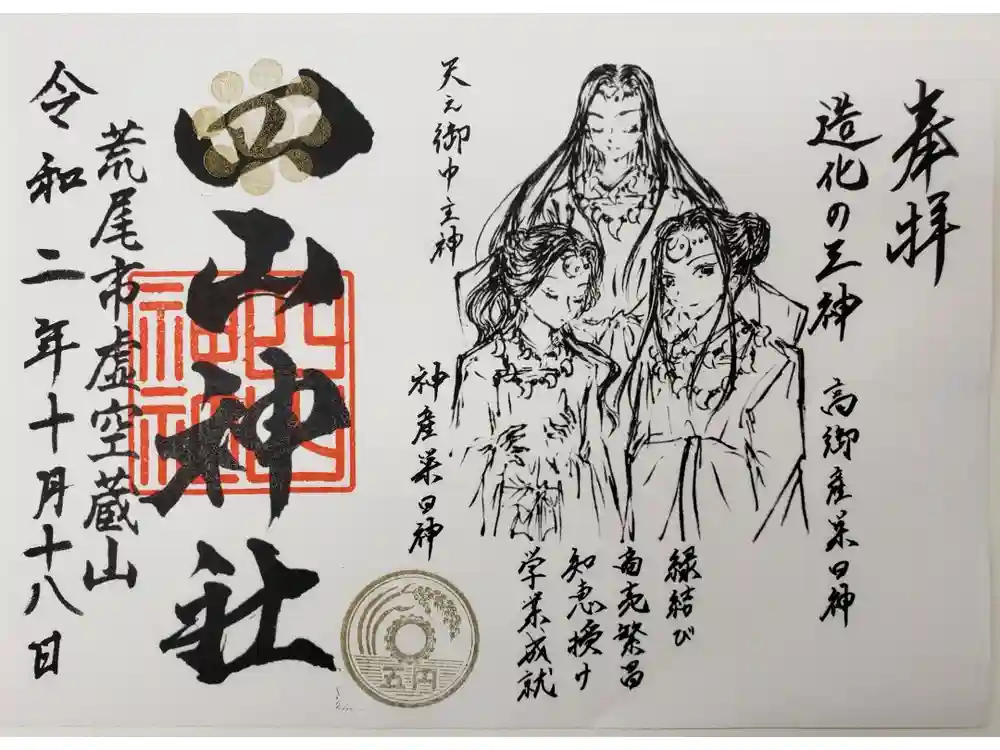 奉拝
造化の三神
高御産巣日神
天之御中主神
神産巣日神
縁結び
商売繁昌
知恵授け
学業成就
五円
四山神社
四山神社
荒尾市虚空蔵山
令和二年十月十八日